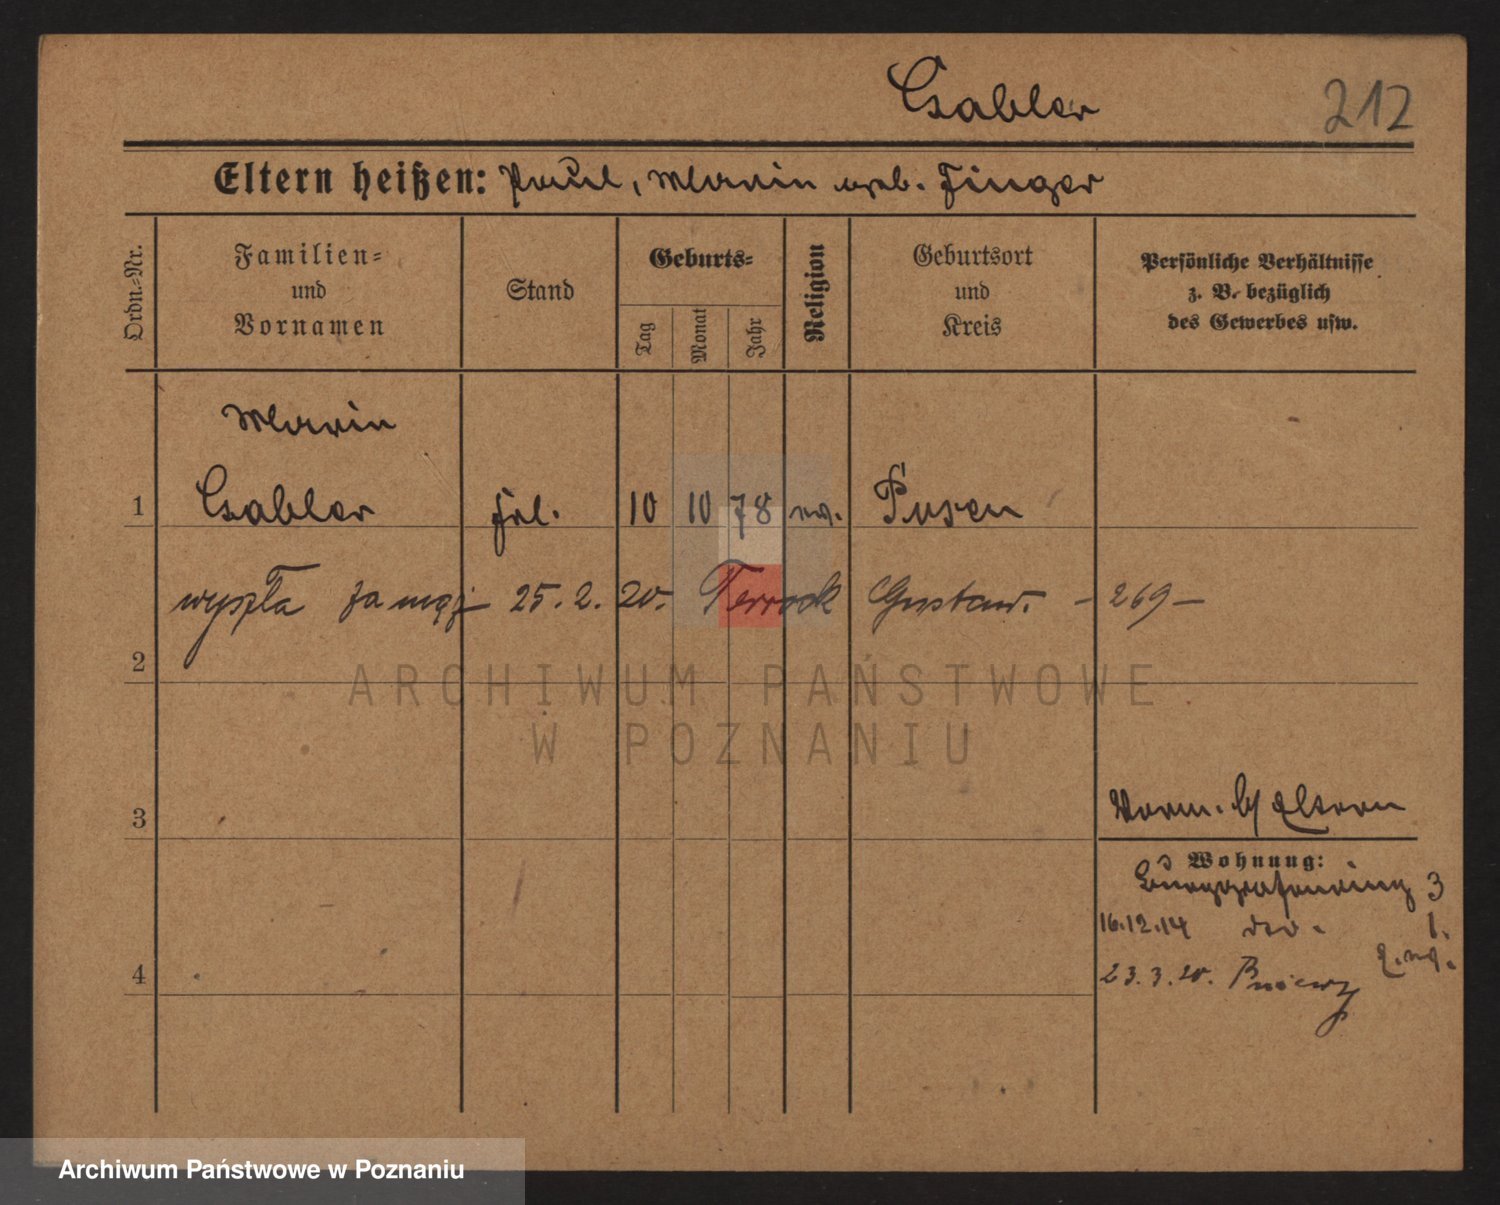 Gabler 212
Eltern heißen: Paul, Marie geb. Finger
Ordn.-Nr.
Familien-
und
Vornamen
Stand
Geburts-
Tag
Monat
Jahr
Religion
Geburtsort
und
Kreis
Persönliche Verhältnisse
z. B. bezüglich
des Gewerbes usw.
Marie
1 Gabler Frl. 10 10 78 ev. Posen
wyszła za mąż 25.2.20. Terrock Gustaw. - 269 -
2
ARCHIWUM PAŃSTWOWE
W POZNANIU
3
Vorm. b/ Eltern
Wohnung:
Burggrafenring 3
16.12.14 1.
4
23.3.20. Pniewy
Archiwum Państwowe w Poznaniu